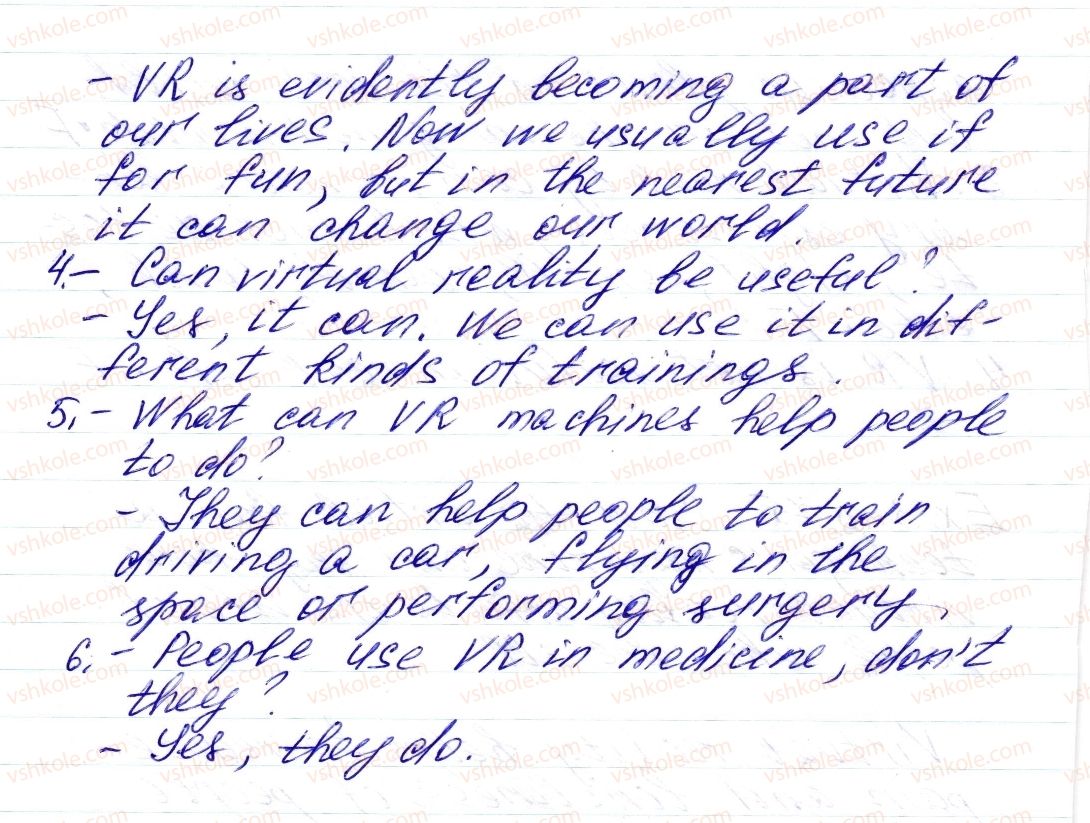 - VR is evidently becoming a part of
our lives. Now we usually use it
for fun, but in the nearest future
it can change our world.
4.- Can virtual reality be useful?
- Yes, it can. We can use it in dif-
ferent kinds of trainings.
5.- What can VR machines help people
to do?
- They can help people to train
driving a car, flying in the
space or performing surgery.
6.- People use VR in medicine, don't
they?
- Yes, they do.